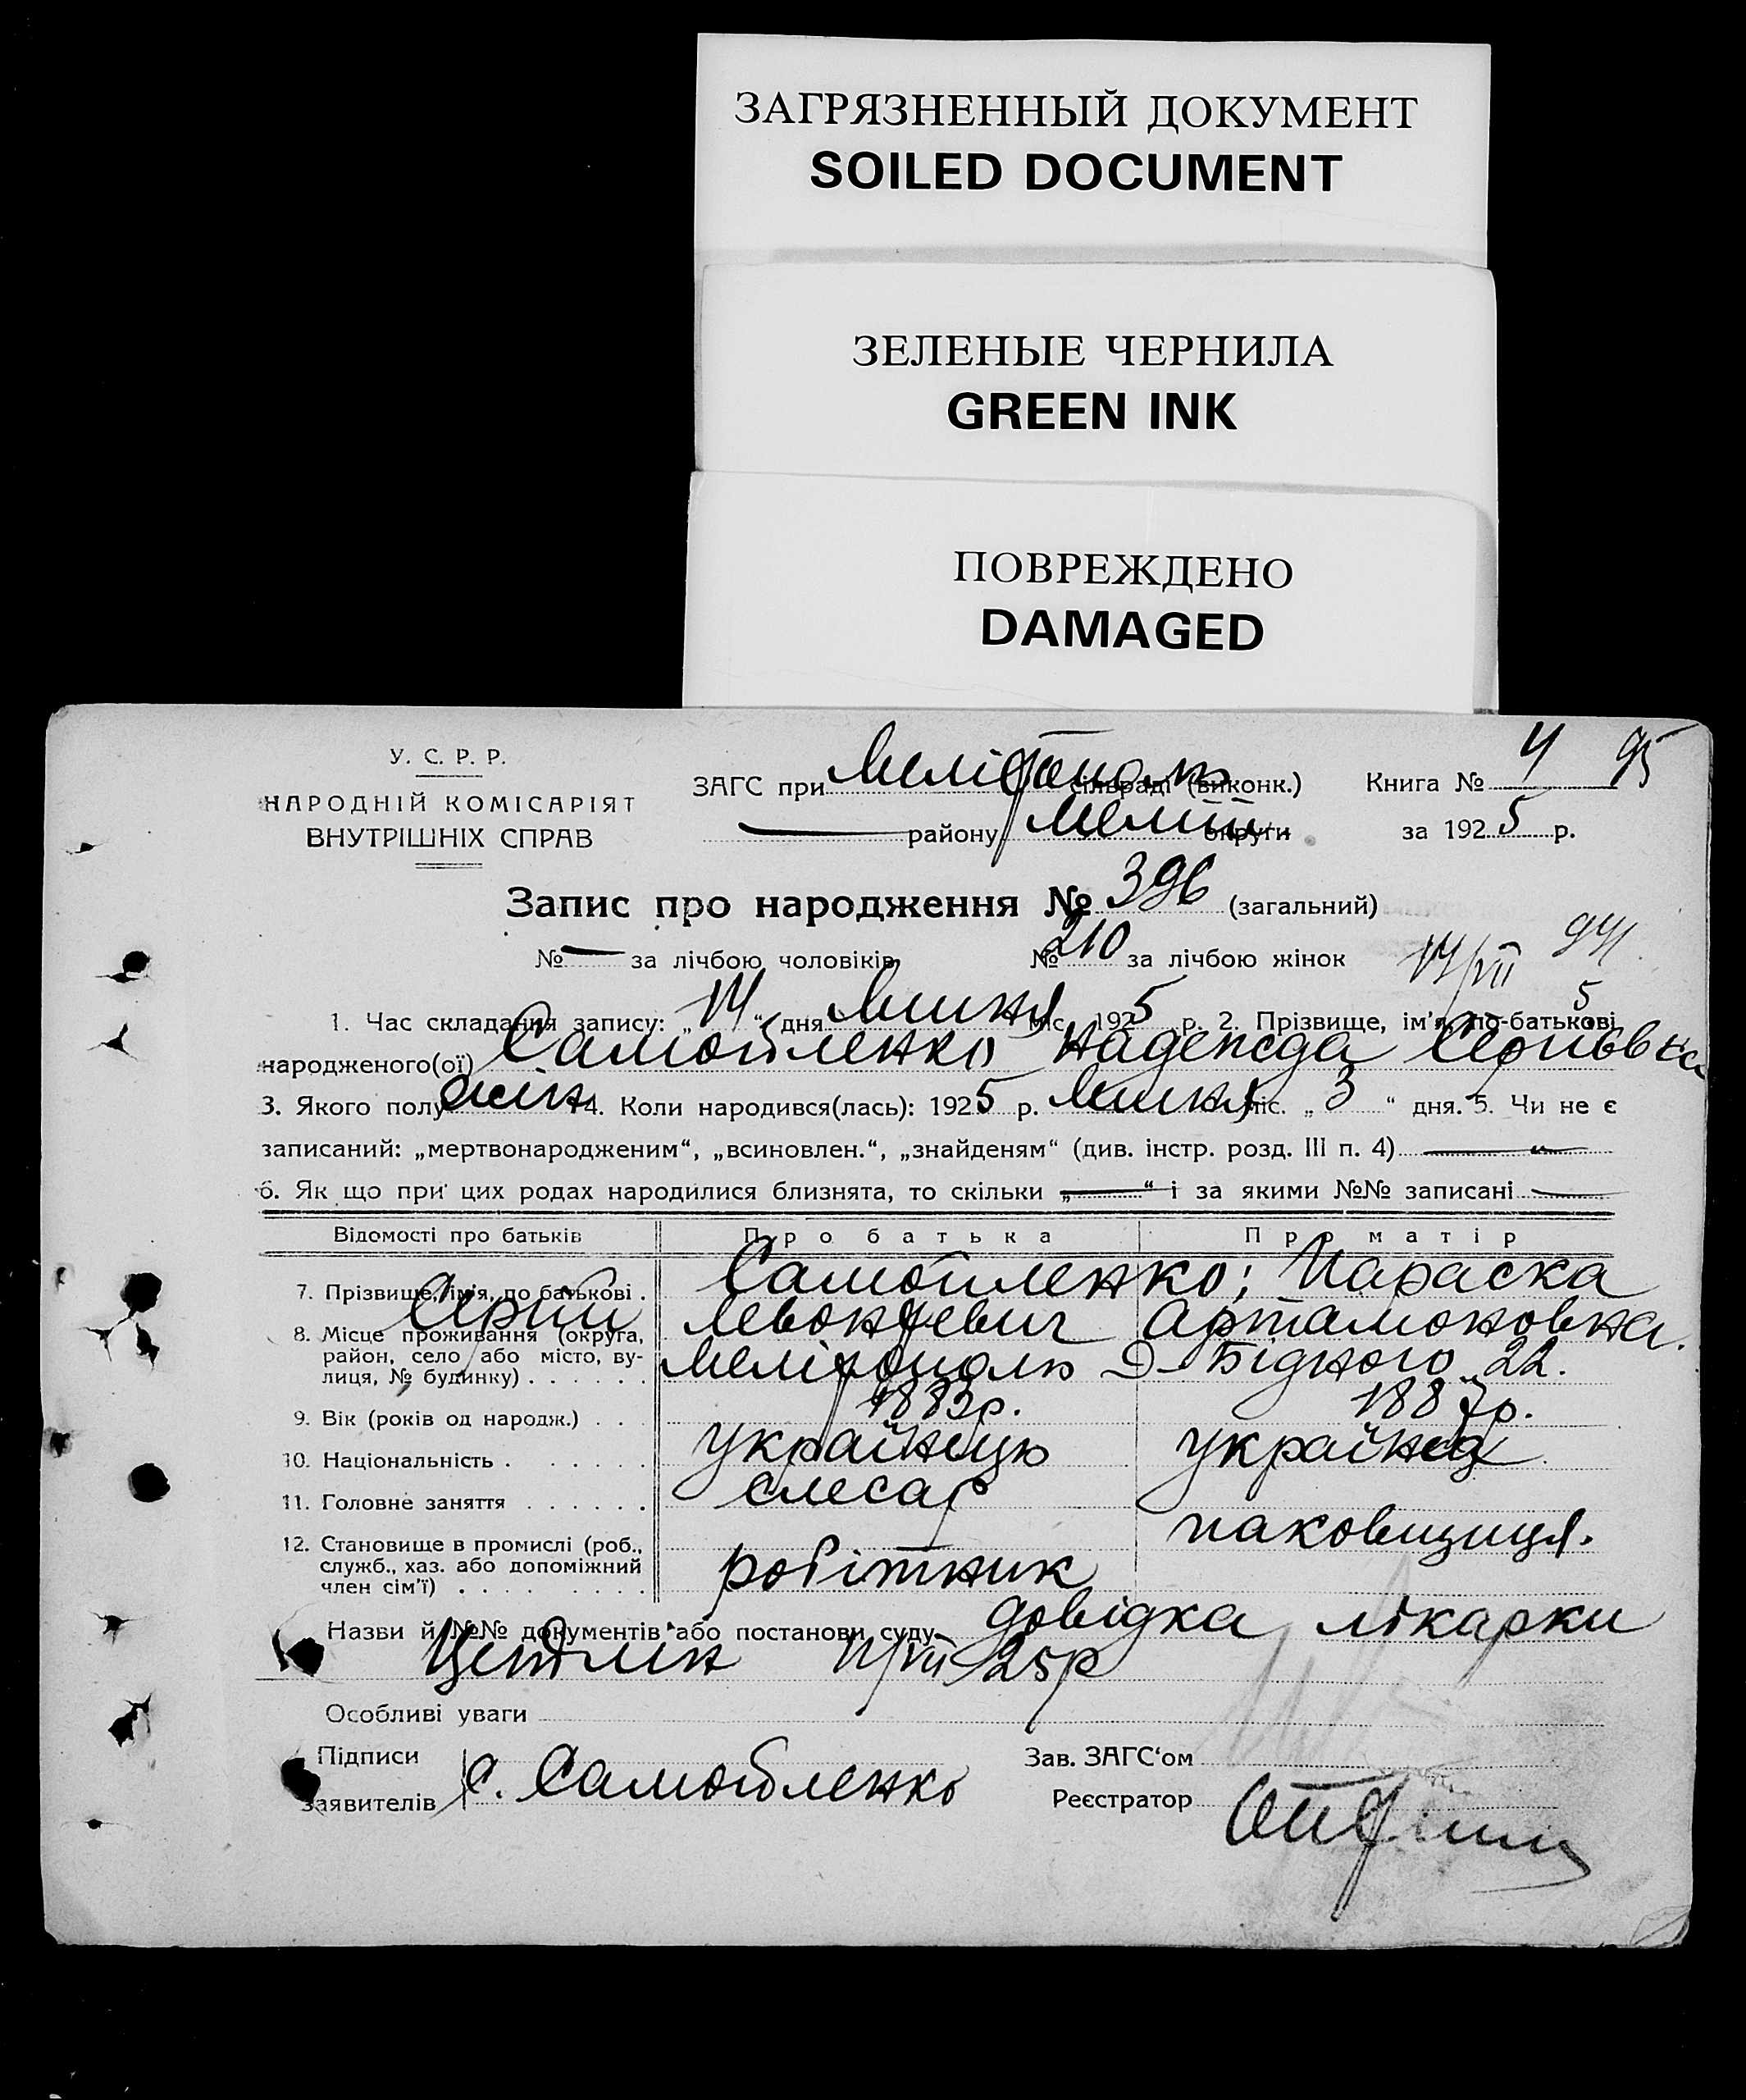 ЗАГРЯЗНЕННЫЙ ДОКУМЕНТ
SOILED DOCUMENT
ЗЕЛЕНЫЕ ЧЕРНИЛА
GREEN INK
ПОВРЕЖДЕНО
DAMAGED
У. С. Р. Р.
НАРОДНІЙ КОМІСАРІЯТ
ВНУТРІШНІХ СПРАВ
ЗАГС при Мелітополь сільраді (виконк.) Книга № 4 95
району Меліт округи за 1925 р.
Запис про народження № 396 (загальний)
№ — за лічбою чоловіків № 210 за лічбою жінок 14/VII 94
1. Час складання запису: „14“ дня Липня міс. 1925 р. 2. Прізвище, ім'я, по-батькові
народженого(ої) Самойленко Надежда
3. Якого полу жін 4. Коли народився(лась): 1925 р. Липня міс. „3“ дня. 5. Чи не є
записаний: „мертвонародженим“, „всиновлен.“, „знайденям“ (див. інстр. розд. III п. 4) —
6. Як що при цих родах народилися близнята, то скільки „—“ і за якими №№ записані —
Відомості про батьків Про батька Про матір
7. Прізвище, ім'я, по батькові . Самойленко; Параска
Сергій Левонтевич Артамоновна.
8. Місце проживання (округа,
район, село або місто, ву-
лиця, № будинку) . . . . . . Мелітополь Д-Бідного 22.
9. Вік (років од народж.) . . . 1883р. 1887р.
10. Національність . . . . . . . українець українка
11. Головне заняття . . . . . . слесар
12. Становище в промислі (роб., паковщиця.
служб., хаз. або допоміжний
член сім'ї) . . . . . . . . . робітник
Назви й №№ документів або постанови суду довідка лікарки
Цейтлін 11/VII 25р
Особливі уваги
Підписи Зав. ЗАГС'ом
заявителів С. Самойленко Реєстратор